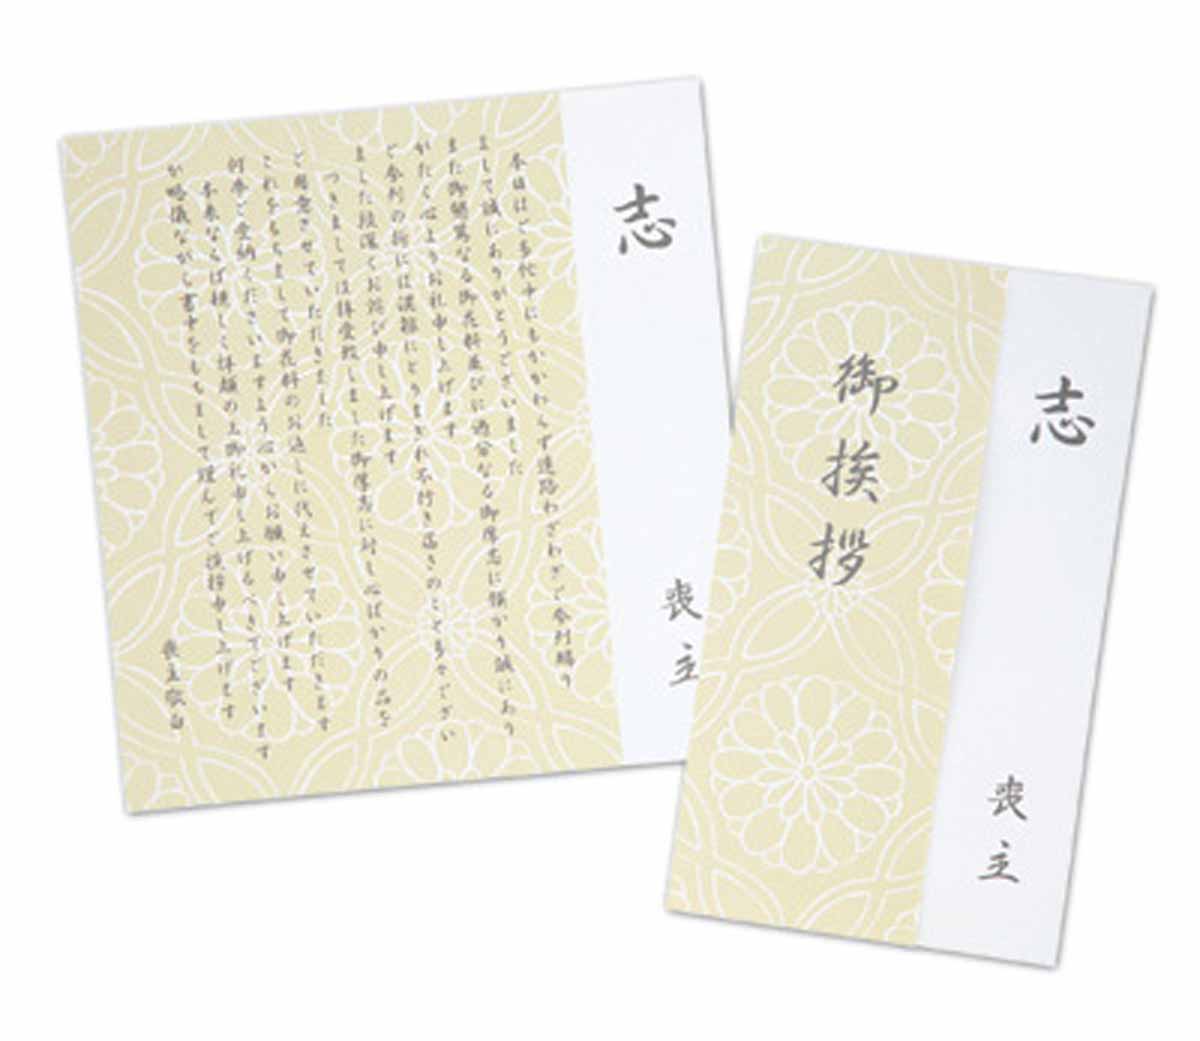 志
喪主
本日はご多忙中にもかかわらず遠路わざわざご参列賜り
まして誠にありがとうございました
また御懇篤なる御花料並びに過分なる御厚志に預かり誠にあり
がたく心よりお礼申し上げます
ご参列の折には混雑にとりまぎれ不行き届きのこと多々ござい
ました段深くお詫び申し上げます
つきましては拝受致しました御厚志に対し心ばかりの品を
ご用意させていただきました
これをもちまして御花料のお返しに代えさせていただきます
何卒ご受納くださいますよう心からお願い申し上げます
本来ならば親しく拝顔の上御礼申し上げるべきでございます
が略儀ながら書中をもちまして謹んでご挨拶申し上げます
喪主敬白
志
喪主
御挨拶